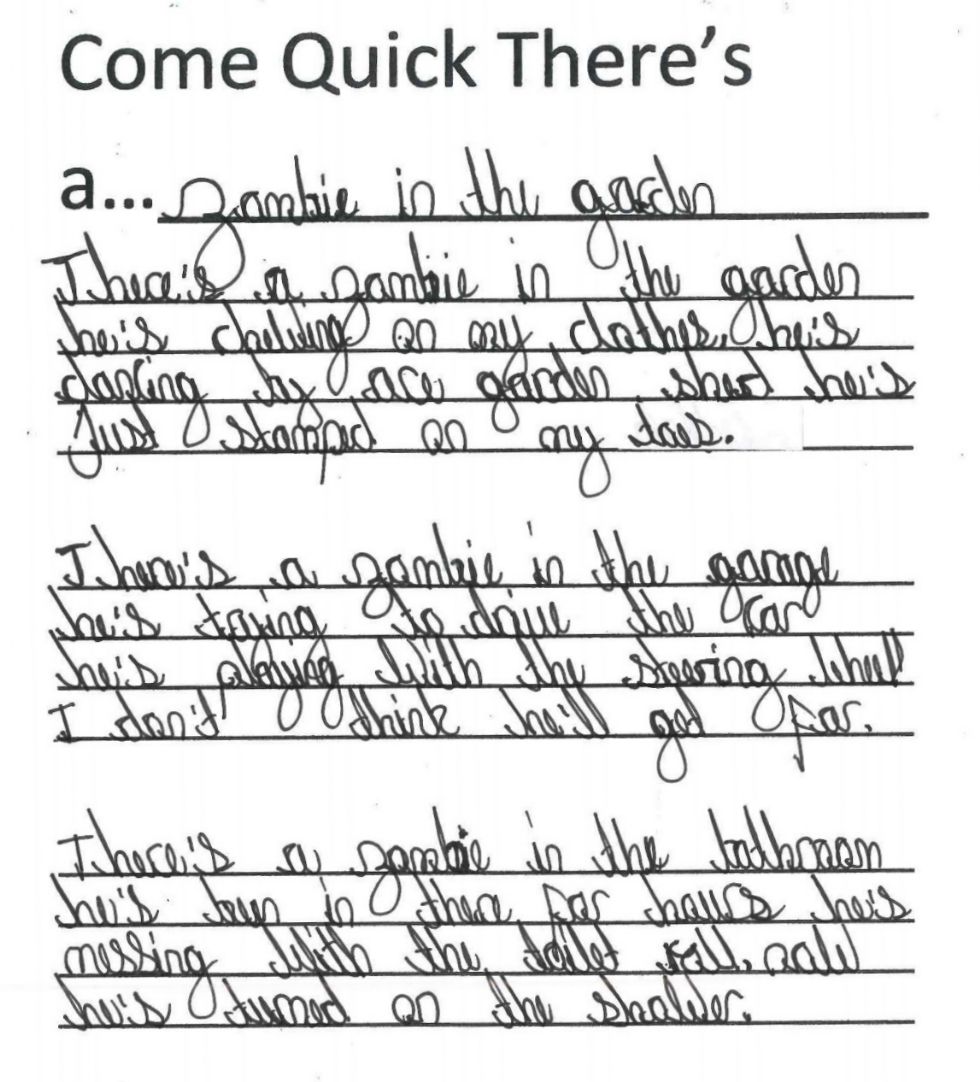 Come Quick There's
a... zombie in the garden
There's a zombie in the garden
he's chewing on my clothes, he's
dancing by are garden shed he's
just stomped on my toes.
There's a zombie in the garage
he's trying to drive the car
he's playing with the steering wheel
I don't think he'll get far.
There's a zombie in the bathroom
he's been in there for hours he's
messing with the toilet roll. now
he's turned on the shower.